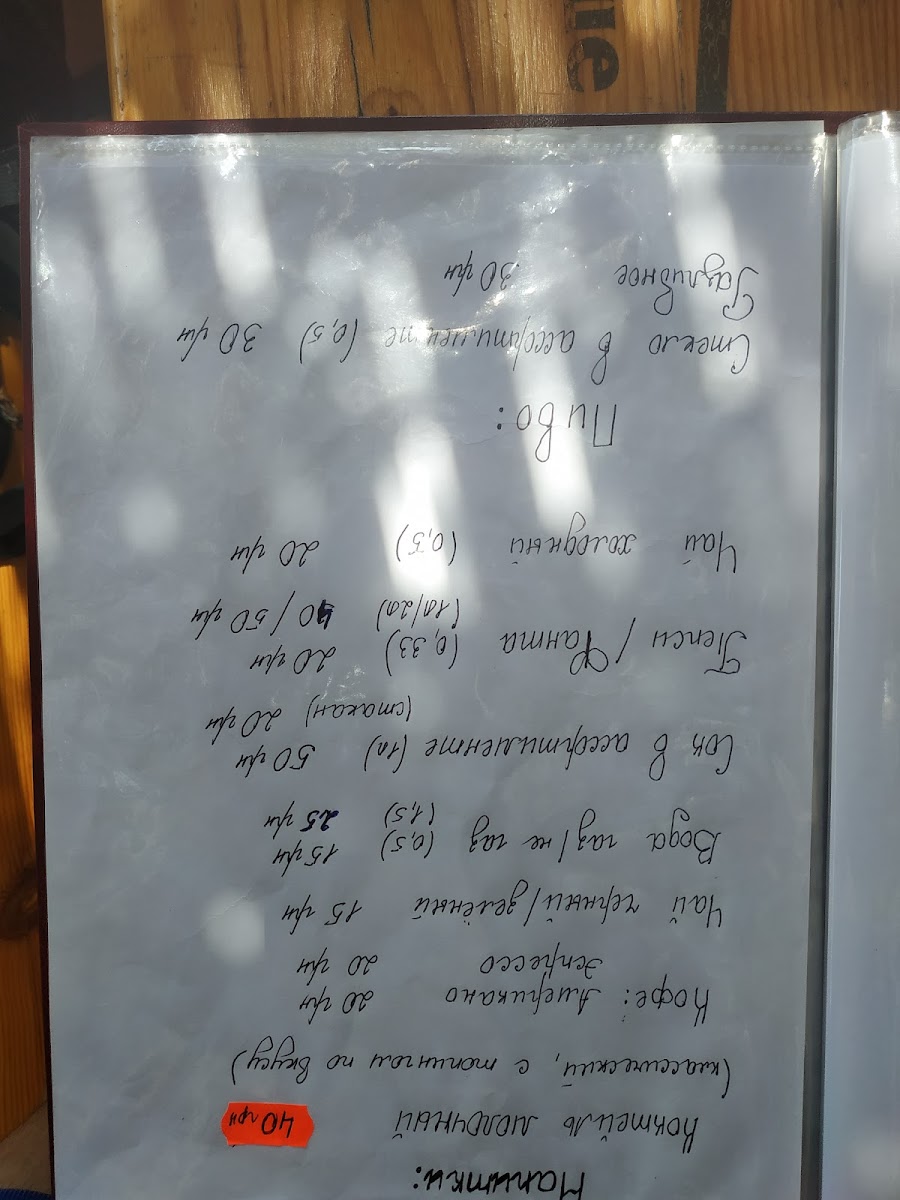 Напитки:
Коктейль молочный 40 грн
(классический, с топингом по вкусу)
Кофе: Американо 20 грн
эспрессо 20 грн
Чай черный/зелёный 15 грн
Вода газ/не газ (0,5) 15 грн
(1,5) 25 грн
Сок в ассортименте (1л) 50 грн
(стакан) 20 грн
Пепси/Фанта (0,33) 20 грн
(1л/2л) 40/50 грн
Чай холодный (0,5) 20 грн
Пиво:
Стекло в ассортименте (0,5) 30 грн
Разливное 30 грн